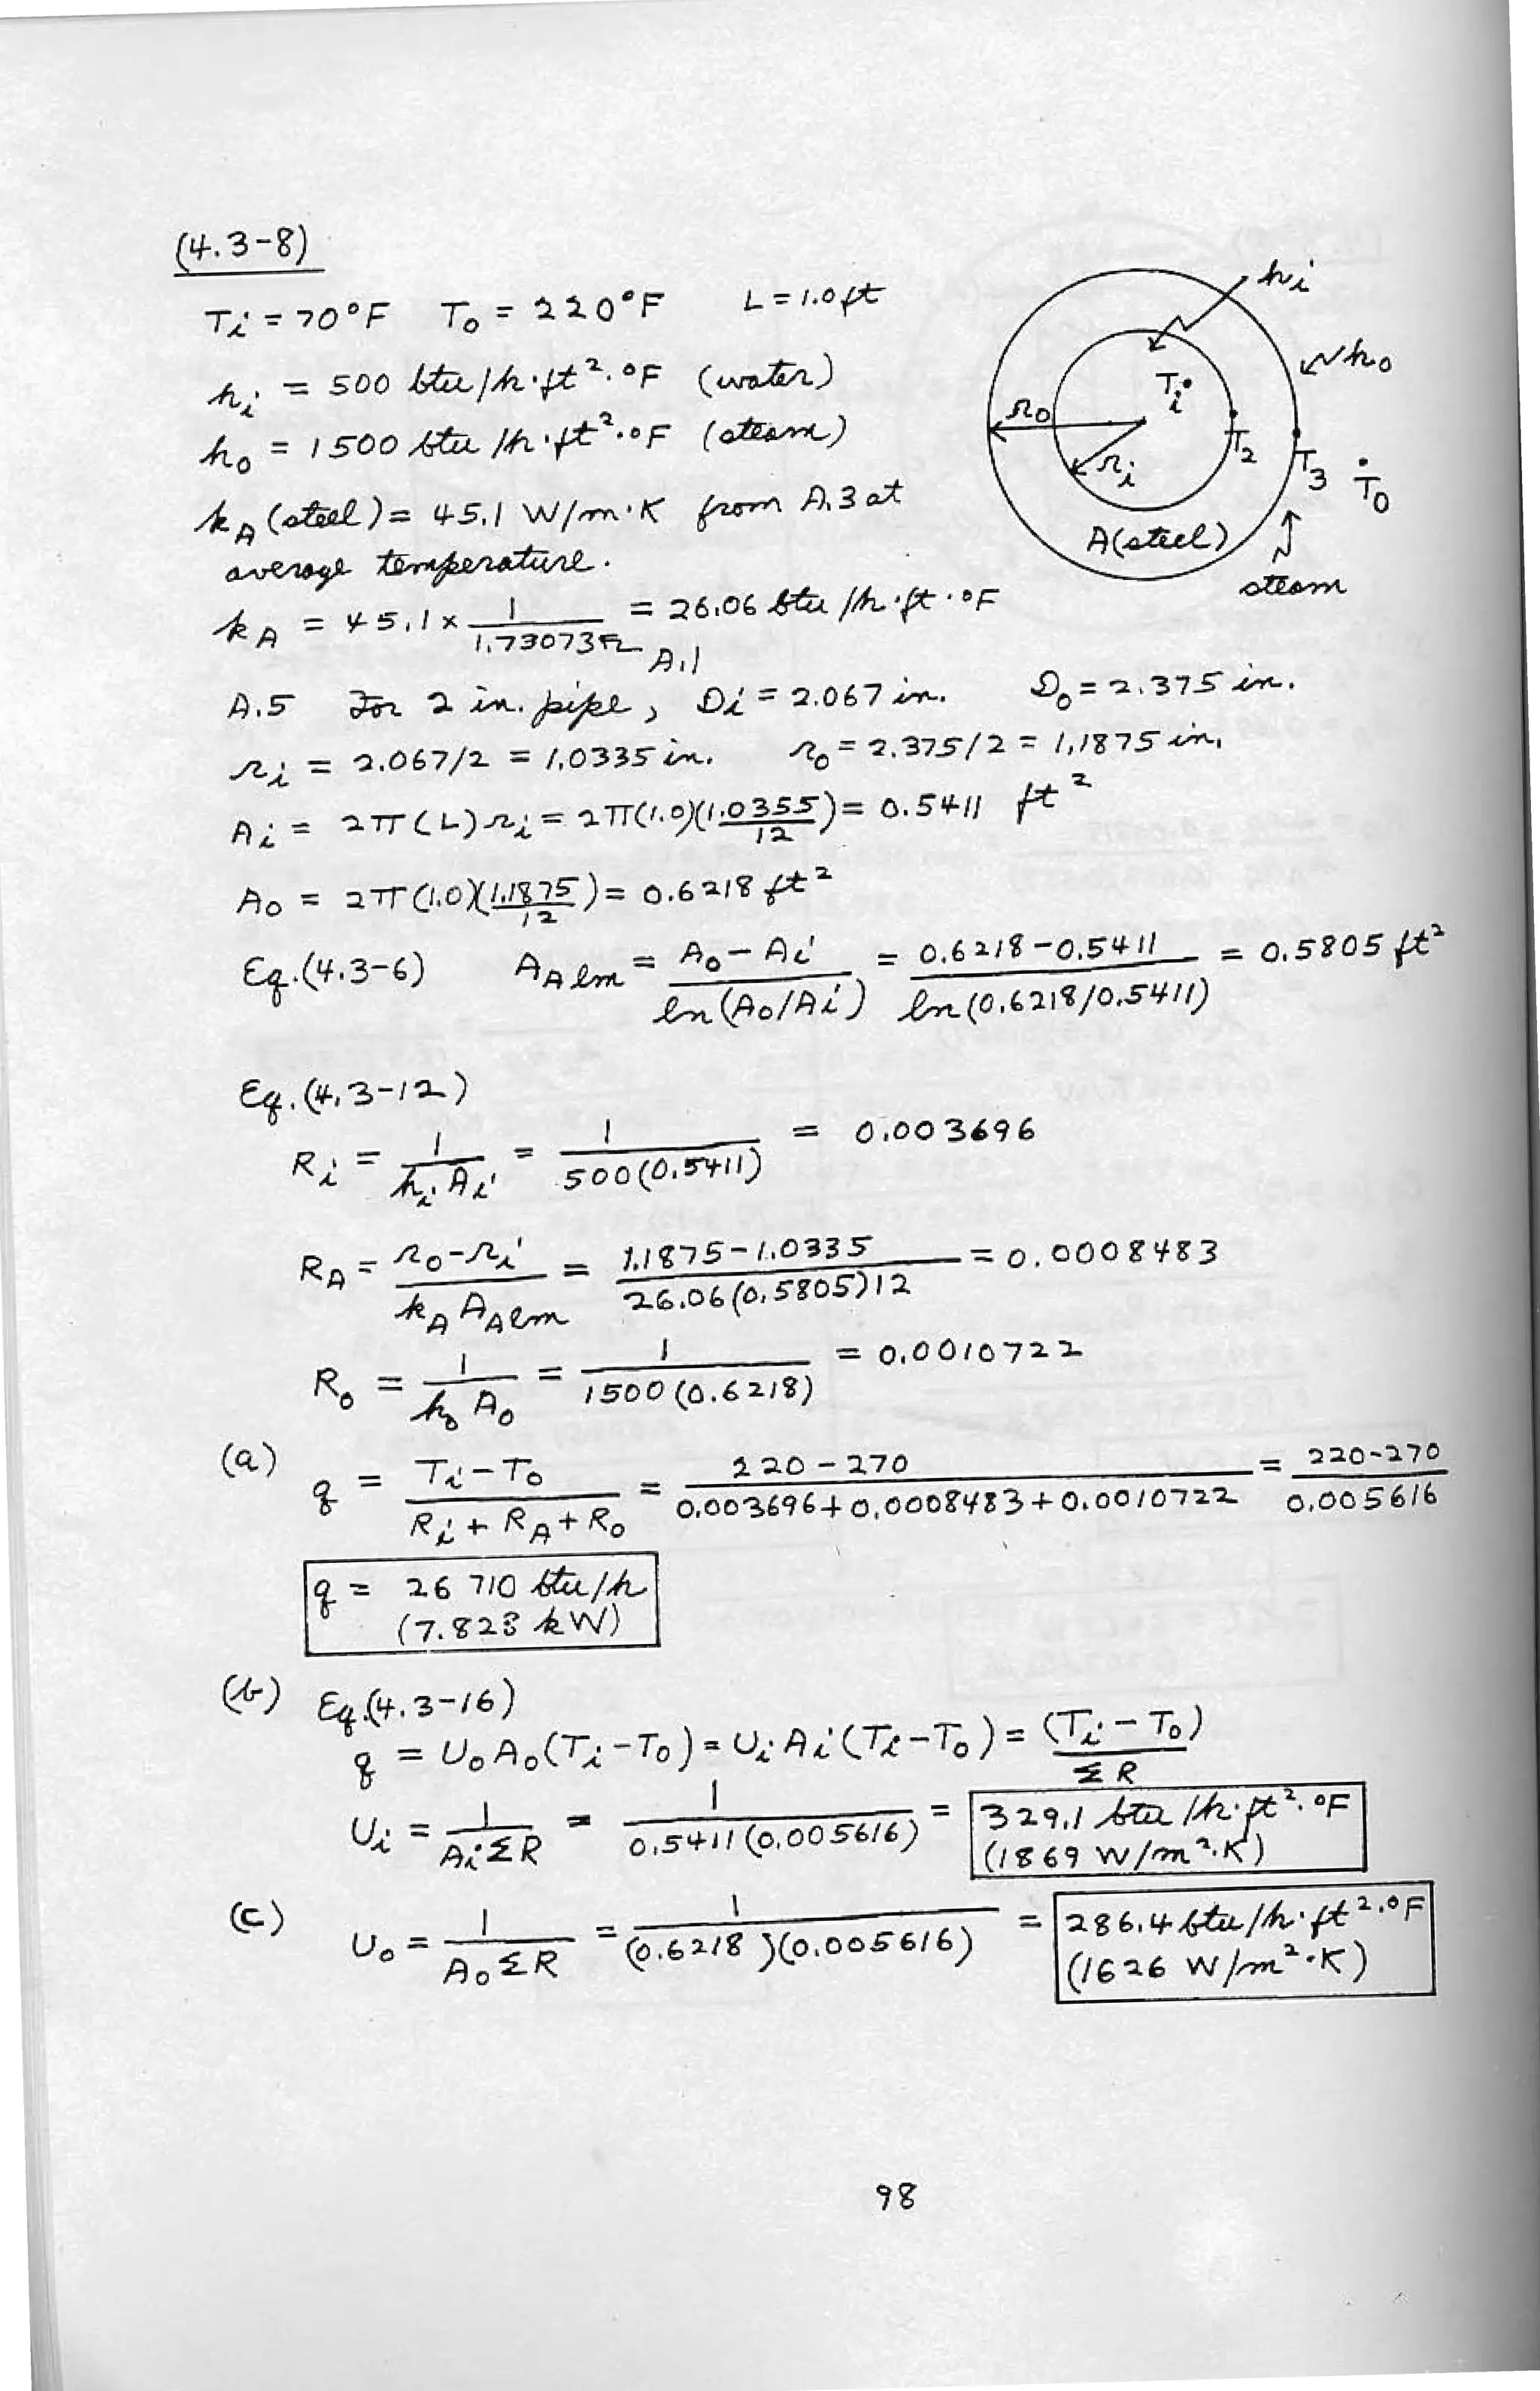 (4.3-8)
Ti = 70°F   To = 220°F   L = 1.0 ft
hi = 500 btu/h·ft²·°F (water)
ho = 1500 btu/h·ft²·°F (steam)
kA (steel) = 45.1 W/m·K from A.3 at
average temperature.
kA = 45.1 x 1/1.73073 = 26.06 btu/h·ft·°F
A.1
hi
ho
ro
ri
Ti
T2
T3
To
A(steel)
steam
A.5 For 2 in. pipe, Di = 2.067 in.   Do = 2.375 in.
ri = 2.067/2 = 1.0335 in.   ro = 2.375/2 = 1.1875 in.
Ai = 2π(L)ri = 2π(1.0)(1.0355/12) = 0.5411 ft²
Ao = 2π(1.0)(1.1875/12) = 0.6218 ft²
Eq.(4.3-6)   AA lm = (Ao - Ai)/ln(Ao/Ai) = (0.6218 - 0.5411)/ln(0.6218/0.5411) = 0.5805 ft²
Eq.(4.3-12)
Ri = 1/(hi Ai) = 1/(500(0.5411)) = 0.003696
RA = (ro - ri)/(kA AA lm) = (1.1875 - 1.0335)/(26.06(0.5805)12) = 0.0008483
Ro = 1/(ho Ao) = 1/(1500(0.6218)) = 0.0010722
(a) q = (Ti - To)/(Ri + RA + Ro) = (220 - 270)/(0.003696 + 0.0008483 + 0.0010722) = (220-270)/0.005616
q = 26 710 btu/h
(7.828 kW)
(b) Eq.(4.3-16)
q = Uo Ao(Ti - To) = Ui Ai(Ti - To) = (Ti - To)/ΣR
Ui = 1/(Ai ΣR) = 1/(0.5411(0.005616)) = 329.1 btu/h·ft²·°F
(1869 W/m²·K)
(c) Uo = 1/(Ao ΣR) = 1/((0.6218)(0.005616)) = 286.4 btu/h·ft²·°F
(1626 W/m²·K)
98